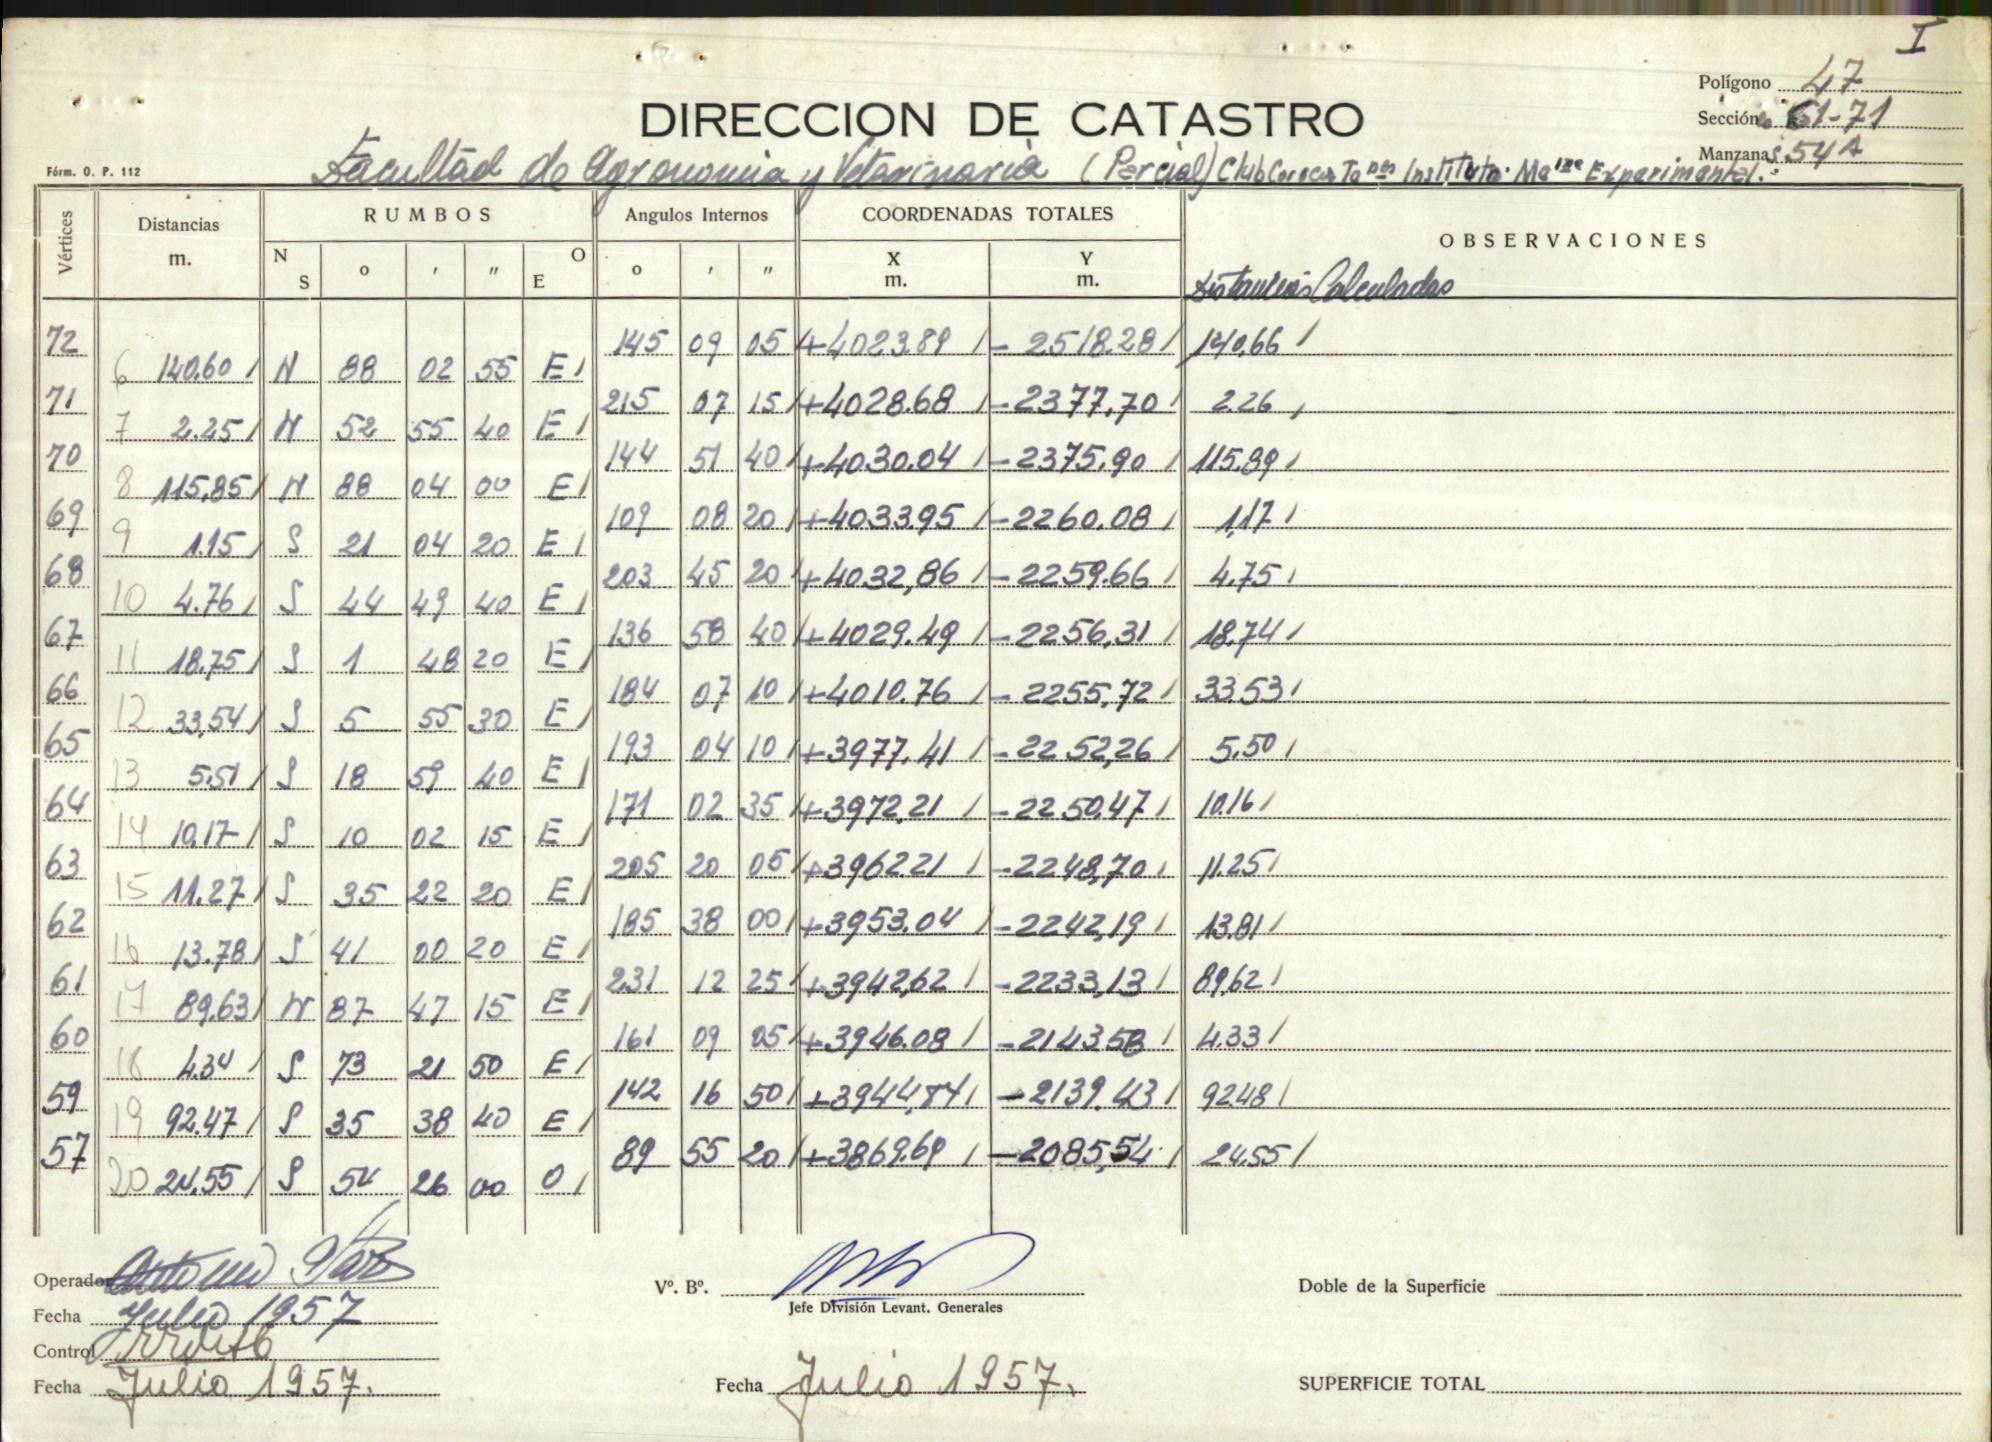 I
Polígono 47
DIRECCION DE CATASTRO
Sección 61-71
Manzana 54A
Fórm. O. P. 112
Facultad de Agronomia y Veterinaria (Parcial) Club Instituto Experimental.
Vértices Distancias m. RUMBOS Angulos Internos COORDENADAS TOTALES OBSERVACIONES
N S ° ' " O E ° ' " X m. Y m.
Distancias Calculadas
72 145 09 05 +4023.89 -2518.28 140.66
6 140.60 N 88 02 55 E
71 215 07 15 +4028.68 -2377.70 2.26
7 2.25 N 52 55 40 E
70 144 51 40 +4030.04 -2375.90 115.89
8 115.85 N 88 04 00 E
69 109 08 20 +4033.95 -2260.08 1,17
9 1.15 S 21 04 20 E
68 203 45 20 +4032,86 -2259.66 4.75
10 4.76 S 44 49 40 E
67 136 58 40 +4029.49 -2256.31 18.74
11 18.75 S 1 48 20 E
66 184 07 10 +4010.76 -2255,72 33.53
12 33,54 S 5 55 30 E
65 193 04 10 +3977.41 -2252,26 5.50
13 5.51 S 18 59 40 E
64 171 02 35 +3972.21 -2250.47 10.16
14 10.17 S 10 02 15 E
63 205 20 05 +3962.21 -2248,70 11.25
15 11.27 S 35 22 20 E
62 185 38 00 +3953.04 -2242,19 13.81
16 13.78 S 41 00 20 E
61 231 12 25 +3942,62 -2233,13 89.62
17 89.63 N 87 47 15 E
60 161 09 05 +3946.08 -2143.58 4.33
18 4.34 S 73 21 50 E
59 142 16 50 +3944,84 -2139.43 92.48
19 92.47 S 35 38 40 E
57 89 55 20 +3869.69 -2085,54 24.55
20 24.55 S 54 26 00 O
Operador
Vº. Bº.
Doble de la Superficie
Jefe División Levant. Generales
Fecha Julio 1957
Control
Fecha Julio 1957.
Fecha Julio 1957.
SUPERFICIE TOTAL